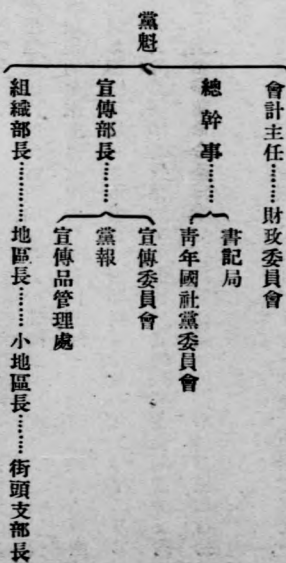 黨魁
會計主任………財政委員會
總幹事………
書記局
靑年國社黨委員會
宣傳部長………
宣傳委員會
黨報
宣傳品管理處
組織部長…………地區長………小地區長………街頭支部長